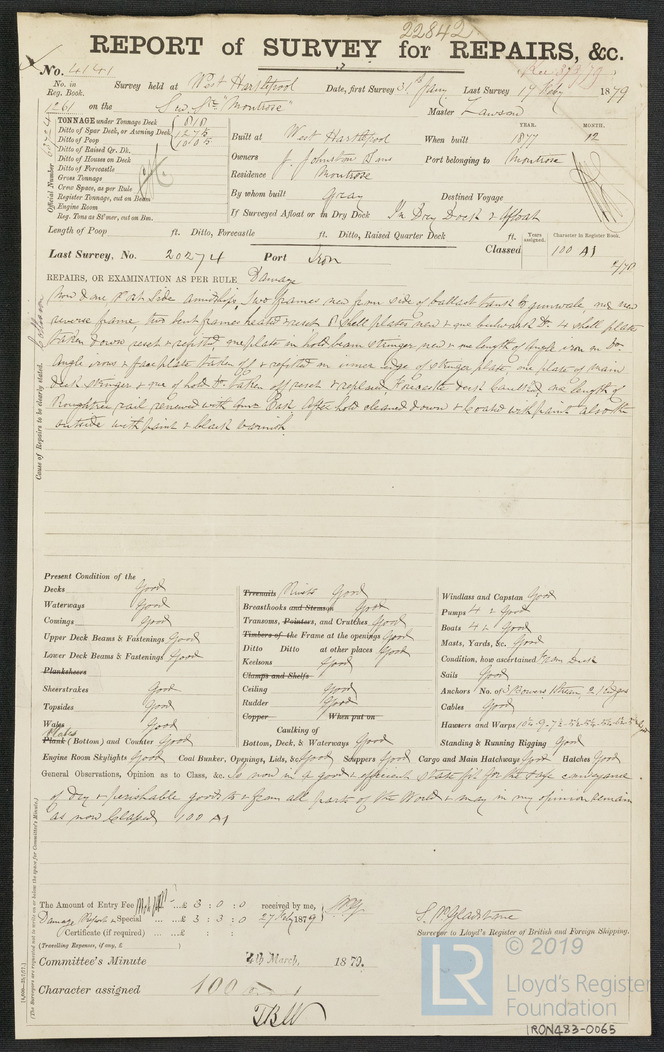 22842
REPORT of SURVEY for REPAIRS, &c.
No. 4141
No. in Reg. Book. Survey held at West Hartlepool Date, first Survey 31st Jany Last Survey 17 1879
1261 on the "Montrose" Master Lawson
TONNAGE under Tonnage Deck
Ditto of Spar Deck, or Awning Deck
Ditto of Poop
Ditto of Raised Qr. Dk.
Ditto of Houses on Deck
Ditto of Forecastle
Gross Tonnage
Crew Space, as per Rule
Register Tonnage, cut on Beam
Engine Room
Reg. Tons as St'mer, cut on Bm.
Official Number
Built at West Hartlepool When built YEAR. 1877 MONTH. 12
Owners J. Johnston & Sons Port belonging to Montrose
Residence Montrose
By whom built Gray Destined Voyage
If Surveyed Afloat or in Dry Dock In Dry Dock & Afloat
Length of Poop ft. Ditto, Forecastle ft. Ditto, Raised Quarter Deck ft.
Years assigned. Character in Register Book.
Last Survey, No. 20274 Port Iron Classed 100 A1
REPAIRS, OR EXAMINATION AS PER RULE, Damage
Cause of Repairs to be clearly stated. Collision
Now done Port side amidships, Two frames new from side of ballast tank to gunwale, one new
reverse frame, two bent frames heated & reset, shell plates new & one bulwark Do. 4 shell plates
taken down reset & refitted, one plate in hold beam stringer new & one length of angle iron on Do.
Angle irons & face plate taken off & refitted on inner edge of stringer plate, one plate of main
deck stringer & one of hold Do. taken off reset & replaced, Forecastle deck caulked, one length of
Roughtree rail renewed with After hold cleaned down & coated with paint also the
outside with paint & black varnish
Present Condition of the
Decks Good
Waterways Good
Comings Good
Upper Deck Beams & Fastenings Good
Lower Deck Beams & Fastenings Good
Planksheers
Sheerstrakes Good
Topsides Good
Wales Good
Plates
Plank (Bottom) and Counter Good
Engine Room Skylights Good Coal Bunker, Openings, Lids, &c. Good Scuppers Good Cargo and Main Hatchways Good Hatches Good
Treenails Rivets Good
Breasthooks and Stemson Good
Transoms, Pointers, and Crutches Good
Timbers of the Frame at the openings Good
Ditto Ditto at other places Good
Keelsons Good
Clamps and Shelfs
Ceiling Good
Rudder Good
Copper When put on
Caulking of
Bottom, Deck, & Waterways Good
Windlass and Capstan Good
Pumps 4 & Good
Boats 4 & Good
Masts, Yards, &c. Good
Condition, how ascertained From Deck
Sails Good
Anchors / No. of 3 Bowers 1 Stream, 2 Kedges
Cables Good
Hawsers and Warps
Standing & Running Rigging Good
General Observations, Opinion as to Class, &c. Is now in a good & efficient state fit for the safe conveyance
of Dry & perishable goods to & from all parts of the World & may in my opinion remain
as now Classed 100 A1
The Amount of Entry Fee ...£ 3 : 0 : 0 received by me,
Damage Report & Special ...£ 3 : 3 : 0 27 Feby 1879
(Certificate (if required) ...£ : :
(Travelling Expenses, if any, £ )
Surveyor to Lloyd's Register of British and Foreign Shipping.
Committee's Minute 4th March, 1879.
Character assigned 100 A 1
(The Surveyors are requested not to write on or below the space for Committee's Minute.)
© 2019
LR
Lloyd's Register
Foundation
IRON483-0065